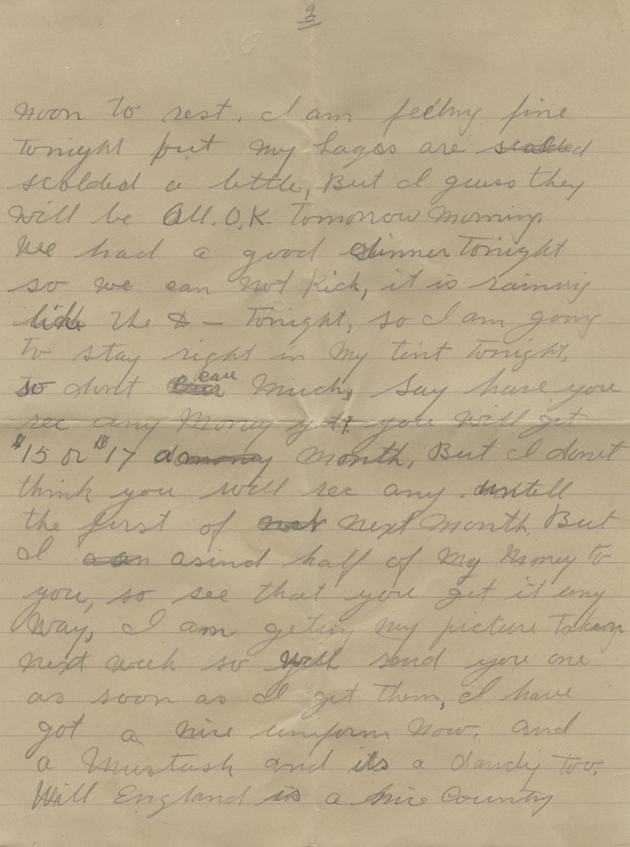 2
noon to rest. I am feeling fine
tonight but my Lages are scalded
scolded a little, But I guess they
will be All. O.K. tomorrow morning
We had a good dinner tonight
so we can not kick, it is raining
like the D – tonight, so I am gong
to stay right in my tint tonight,
so dont eare much, Say have you
rec any Money yet? you will get
$15 or $17 a month, But I dont
think you will rec any. untell
the first of next month. But
I asind half of my Money to
you, so see that you get it any
Way, I am geting my picture taken
next week so will send you one
as soon as I get them, I have
got a nice uniform now. and
a Mustash and its a dandy too.
Will England is a nice Country